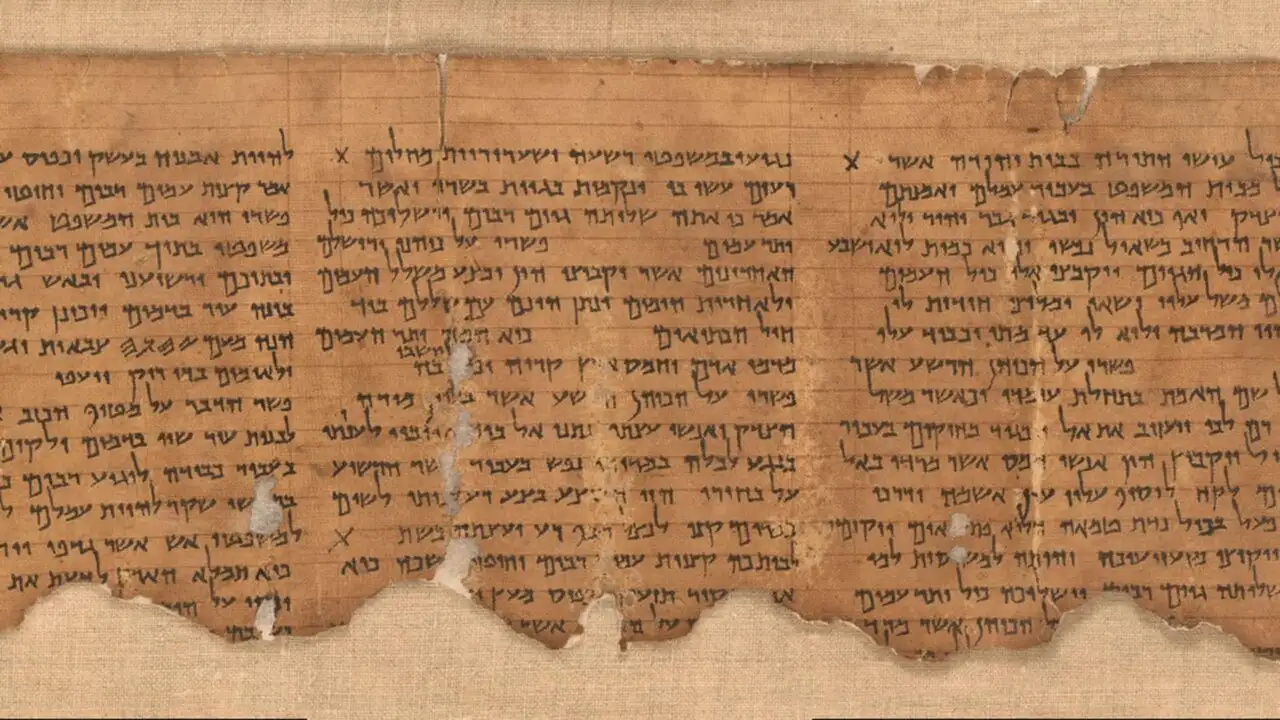 עושי התורה בבית יהודה אשר X
מבית המשפט בעבור עמלם ואמנתם
צדק ואף כיא הון יבגוד גבר יהיר ולוא
הרחיב כשאול נפשו והוא כמות לוא ישבע
כול הגוים ויקבצו אלו כול העמים
משל עליו ישאו ומליצי חידות לו
המרבה ולוא לו עד מתי יכביד עלו
פשרו על הכוהן הרשע אשר
שם האמת בתחלת עומדו וכאשר משל
רם לבו ויעזוב את אל ויבגוד בחוקים בעבור
ויקבוץ הון אנשי חמס אשר מרדו באל
לקח לוסיף עליו עון אשמה ודרכי
פעל בכול נדת טמאה הלוא ויקומו
ויקיצו מזעזיעיכה והיתה למשיסות למו
שלותה גוים רבים וישלוכה כול יתר עמים
הכוהן אשר מרד
נגועו במשפטי רשעה ושערוריות מחלים X
רעים עשו בו ונקמות בגוית בשרו ואשר
אמר כי אתה שלותה גוים רבים וישלוכה כול
יתר עמים פשרו על כוהני ירושלם
האחרונים אשר יקבוצו הון ובצע משלל העמים
ולאחרית הימים ינתן הונם עם שללם ביד
חיל הכתיאים כיא המה יתר העמים
מדמי אדם וחמס ארץ קריה יושבי בה
פשרו על הכוהן הרשע אשר מורה
הצדק ואנשי עצתו נתנו אל ביד אויביו לענותו
בנגע לכלה במרירי נפש בעבור אשר הרשיע
על בחירו הוי הבוצע בצע רע לביתו לשום
במרום קנו לנצל מכף רע יעצתה בשת
לביתכה קצוות עמים רבים וחוטי נפשכה כיא
מקיר תזעק
אשר
להיות אבניה בעשק וכפיס
אמר קצות עמים רבים וחוטי
פשרו הוא בית המשפט
משפטו בתוך עמים רבים
ובתוכם ירשיענו ובאש
בונה עיר בדמים ויכונן
הנה מעם 𐤉𐤄𐤅𐤄 צבאות
ולאומים בדי ריק ייעפו
פשר הדבר על מטיף הכזב
לבנות עיר שוו בדמים ולקים
בעבור כבודה לוגיע רבים
שקר להיות עמלם
למשפטי אש אשר גדפו
כיא תמלא הארץ לדעת את